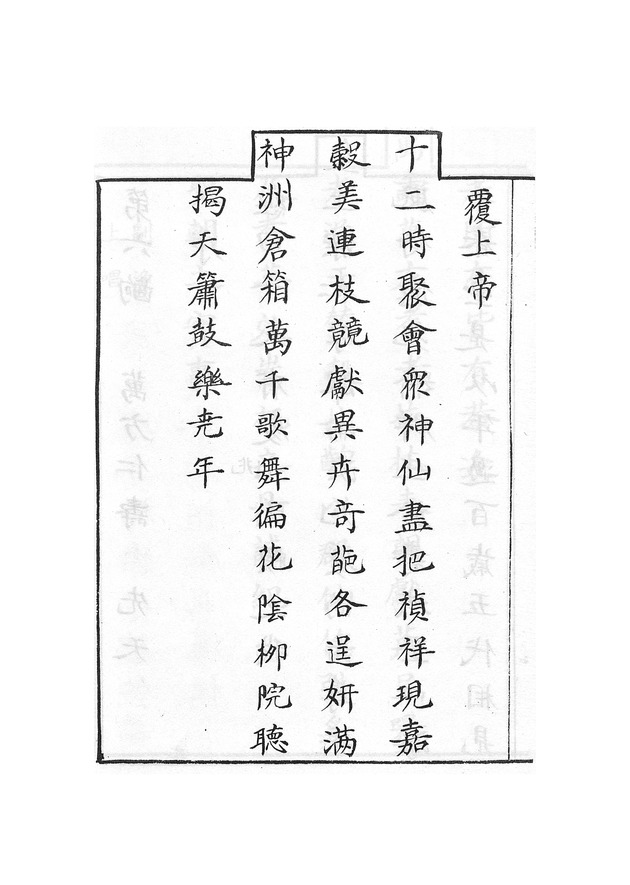 覆上帝
十二時聚會眾神仙盡把禎祥現嘉
穀美連枝競獻異卉奇葩各逞妍满
神洲倉箱萬千歌舞徧花陰柳院聽
揭天簫鼓樂尭年